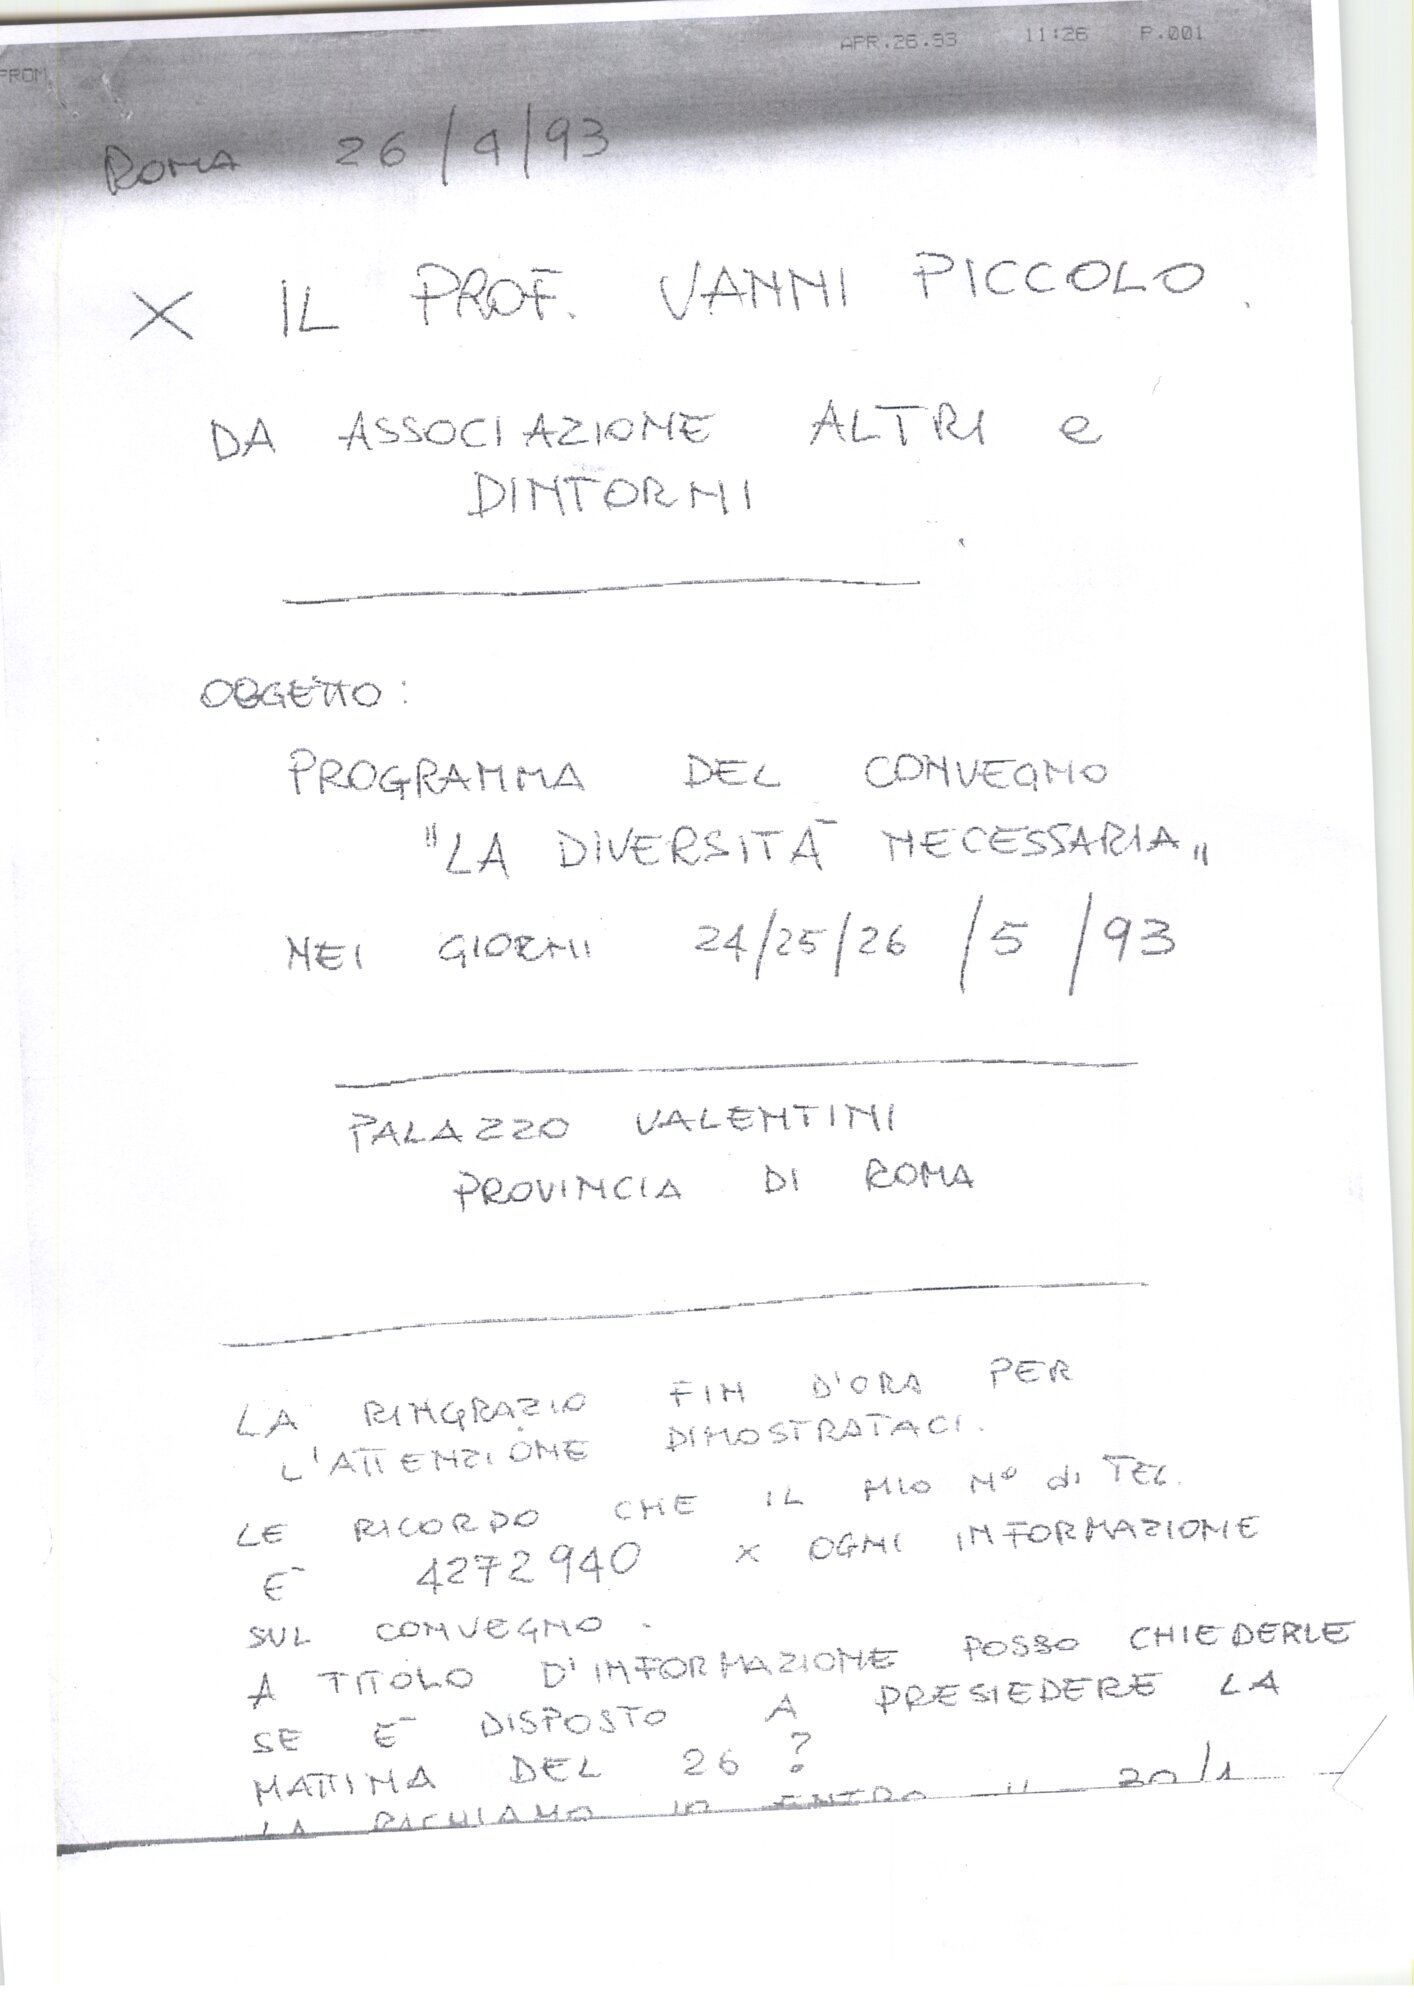 APR.26.93 11:26 P.001
FROM
ROMA 26/4/93
X IL PROF. VANNI PICCOLO.
DA ASSOCIAZIONE ALTRI e
DINTORNI
OGGETTO:
PROGRAMMA DEL CONVEGNO
"LA DIVERSITÀ NECESSARIA"
NEI GIORNI 24/25/26 /5 /93
PALAZZO VALENTINI
PROVINCIA DI ROMA
LA RINGRAZIO FIN D'ORA PER
L'ATTENZIONE DIMOSTRATACI.
LE RICORDO CHE IL MIO N° di TEL.
E' 4272940 X OGNI INFORMAZIONE
SUL CONVEGNO.
A TITOLO D'INFORMAZIONE POSSO CHIEDERLE
SE E' DISPOSTO A PRESIEDERE LA
MATTINA DEL 26?
LA RICHIAMO IO ENTRO